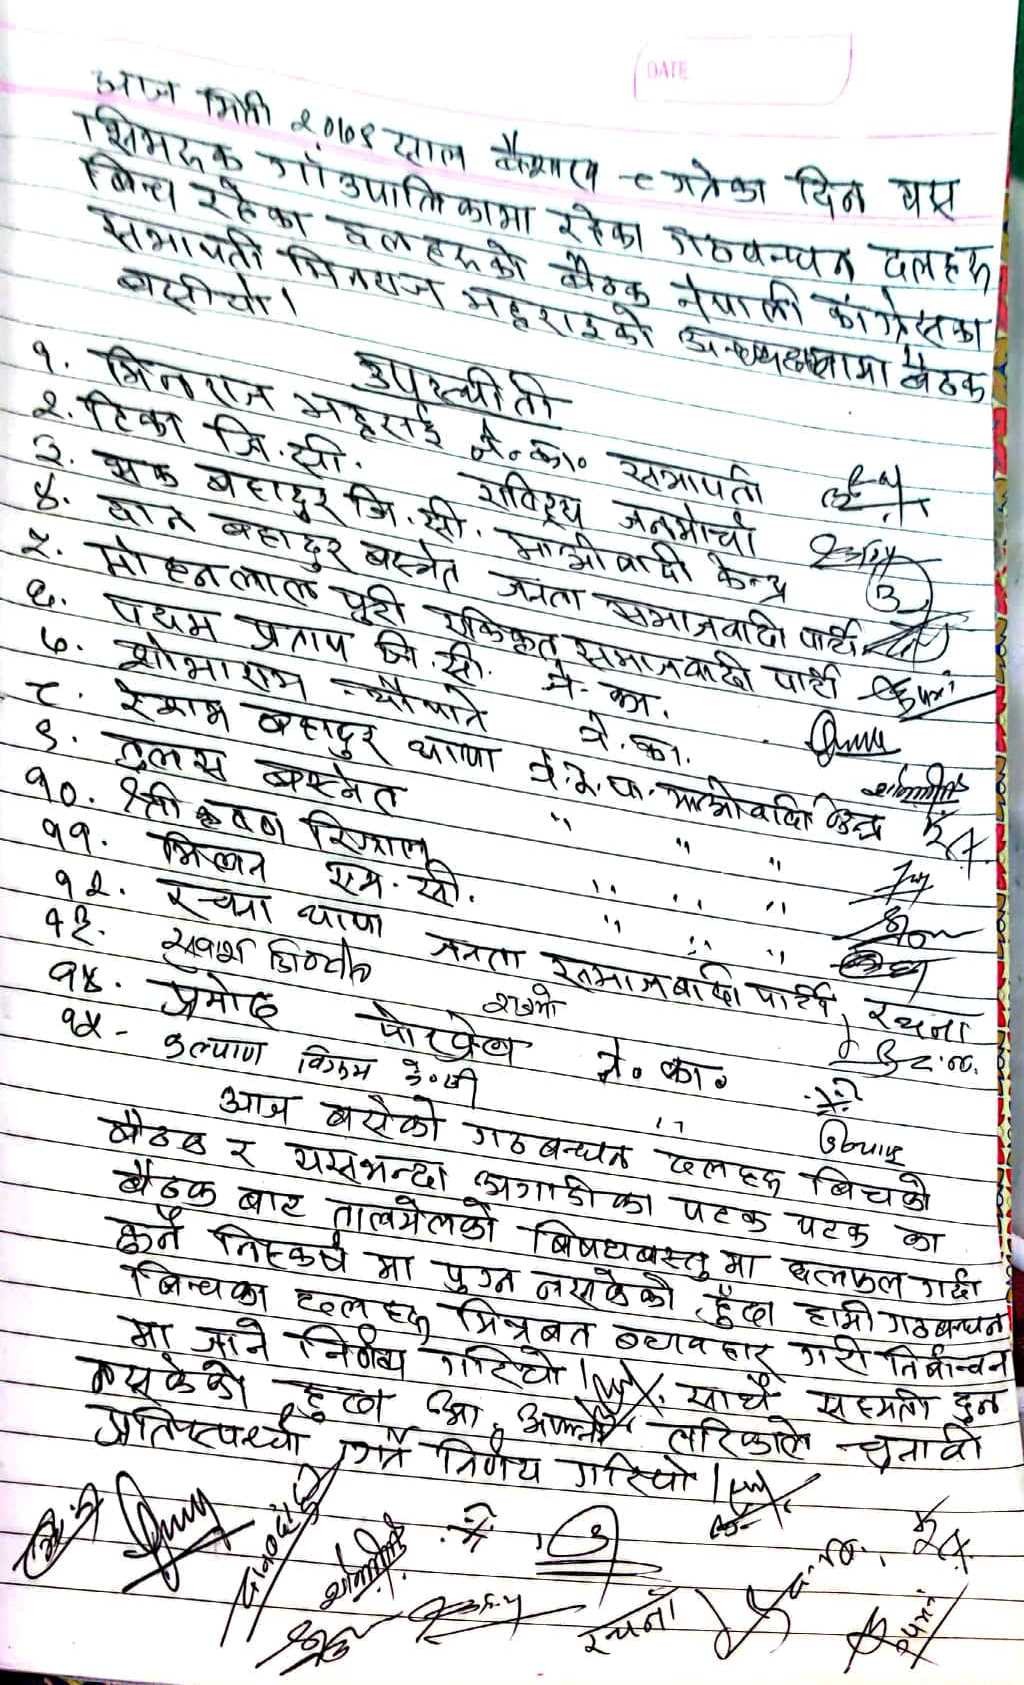 DATE
आज मिति २०७९ साल बैशाख ९ गतेका दिन यस
झिमरुक गाँउपालिकामा रहेका गठबन्धन दलहरु
बिच रहेका दलहरुको बैठक नेपाली काँग्रेसका
सभापती भिनराज भट्टराईको अध्यक्षतामा बैठक
बसीयो।
उपस्थीती
१. भिनराज भट्टराई ने.का. सभापती
२. टिका जि.सी. राष्ट्रिय जनमोर्चा
३. भक्त बहादुर जि.सी. माओवादी केन्द्र
४. दान बहादुर बस्नेत जनता समाजवादी पार्टी
५. मोहनलाल पुरी एकिकृत समाजवादी पार्टी
६. प्रताप जि.सी. ने. का.
७. शोभाराम न्यौपाने ने.का.
८. रेशाम बहादुर थापा ने.क.पा. माओवादि केन्द्र
९. तुलस बस्नेत " " "
१०. श्री कृष्ण रिजाल " " "
११. मिलन एम.सी. " " "
१२. रचना थापा जनता समाजवादी पार्टी रचना
१३.
१४. प्रमोद पोख्रेल ने. का.
१५- कल्याण विक्रम के.सी "
आज बसेको गठबन्धन दलहरु बिचको
बैठक र यसभन्दा अगाडीका पटक पटक का
बैठक बाट तालमेलको बिषयबस्तु मा छलफल गर्दा
कुनै निष्कर्ष मा पुग्न नसकेको हुँदा हामी गठबन्धन
बिचका दलहरु मित्रबत ब्यावहार गरी निर्बाचन
मा जाने निर्णय गरियो। साथै सहमती हुन
नसकेको हुदा आ आफ्नै तरिकाले चुनावी
प्रतिस्पर्ध्या गर्ने निर्णय गरियो।
रचना